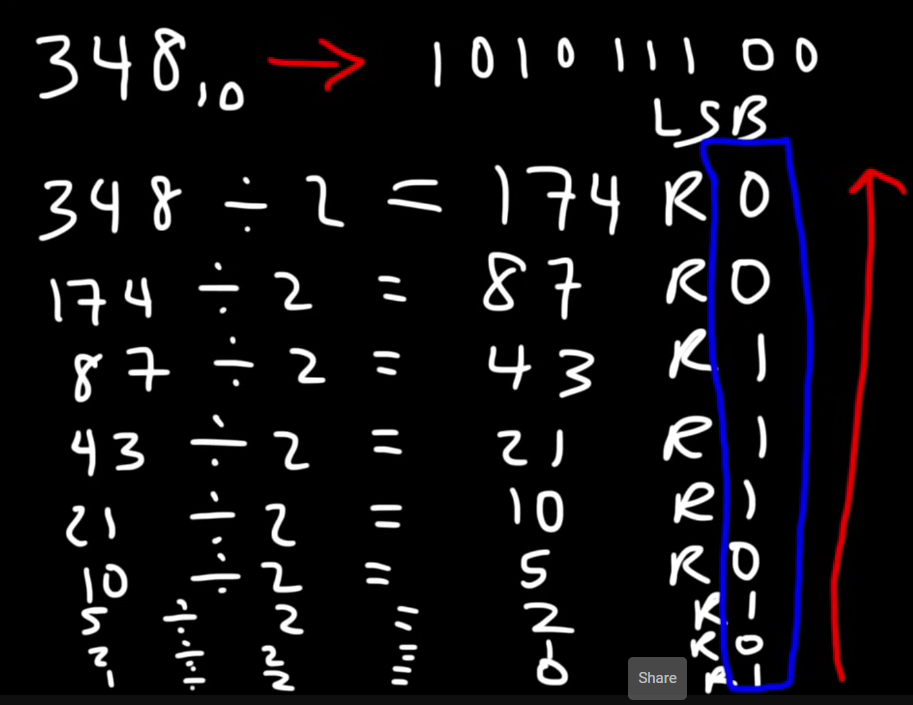 348₁₀ → 1010111 00
LSB
348 ÷ 2 = 174 R 0
174 ÷ 2 = 87 R 0
87 ÷ 2 = 43 R 1
43 ÷ 2 = 21 R 1
21 ÷ 2 = 10 R 1
10 ÷ 2 = 5 R 0
5 ÷ 2 = 2 R 1
2 ÷ 2 = 1 R 0
1 ÷ 2 = 0 R 1
Share